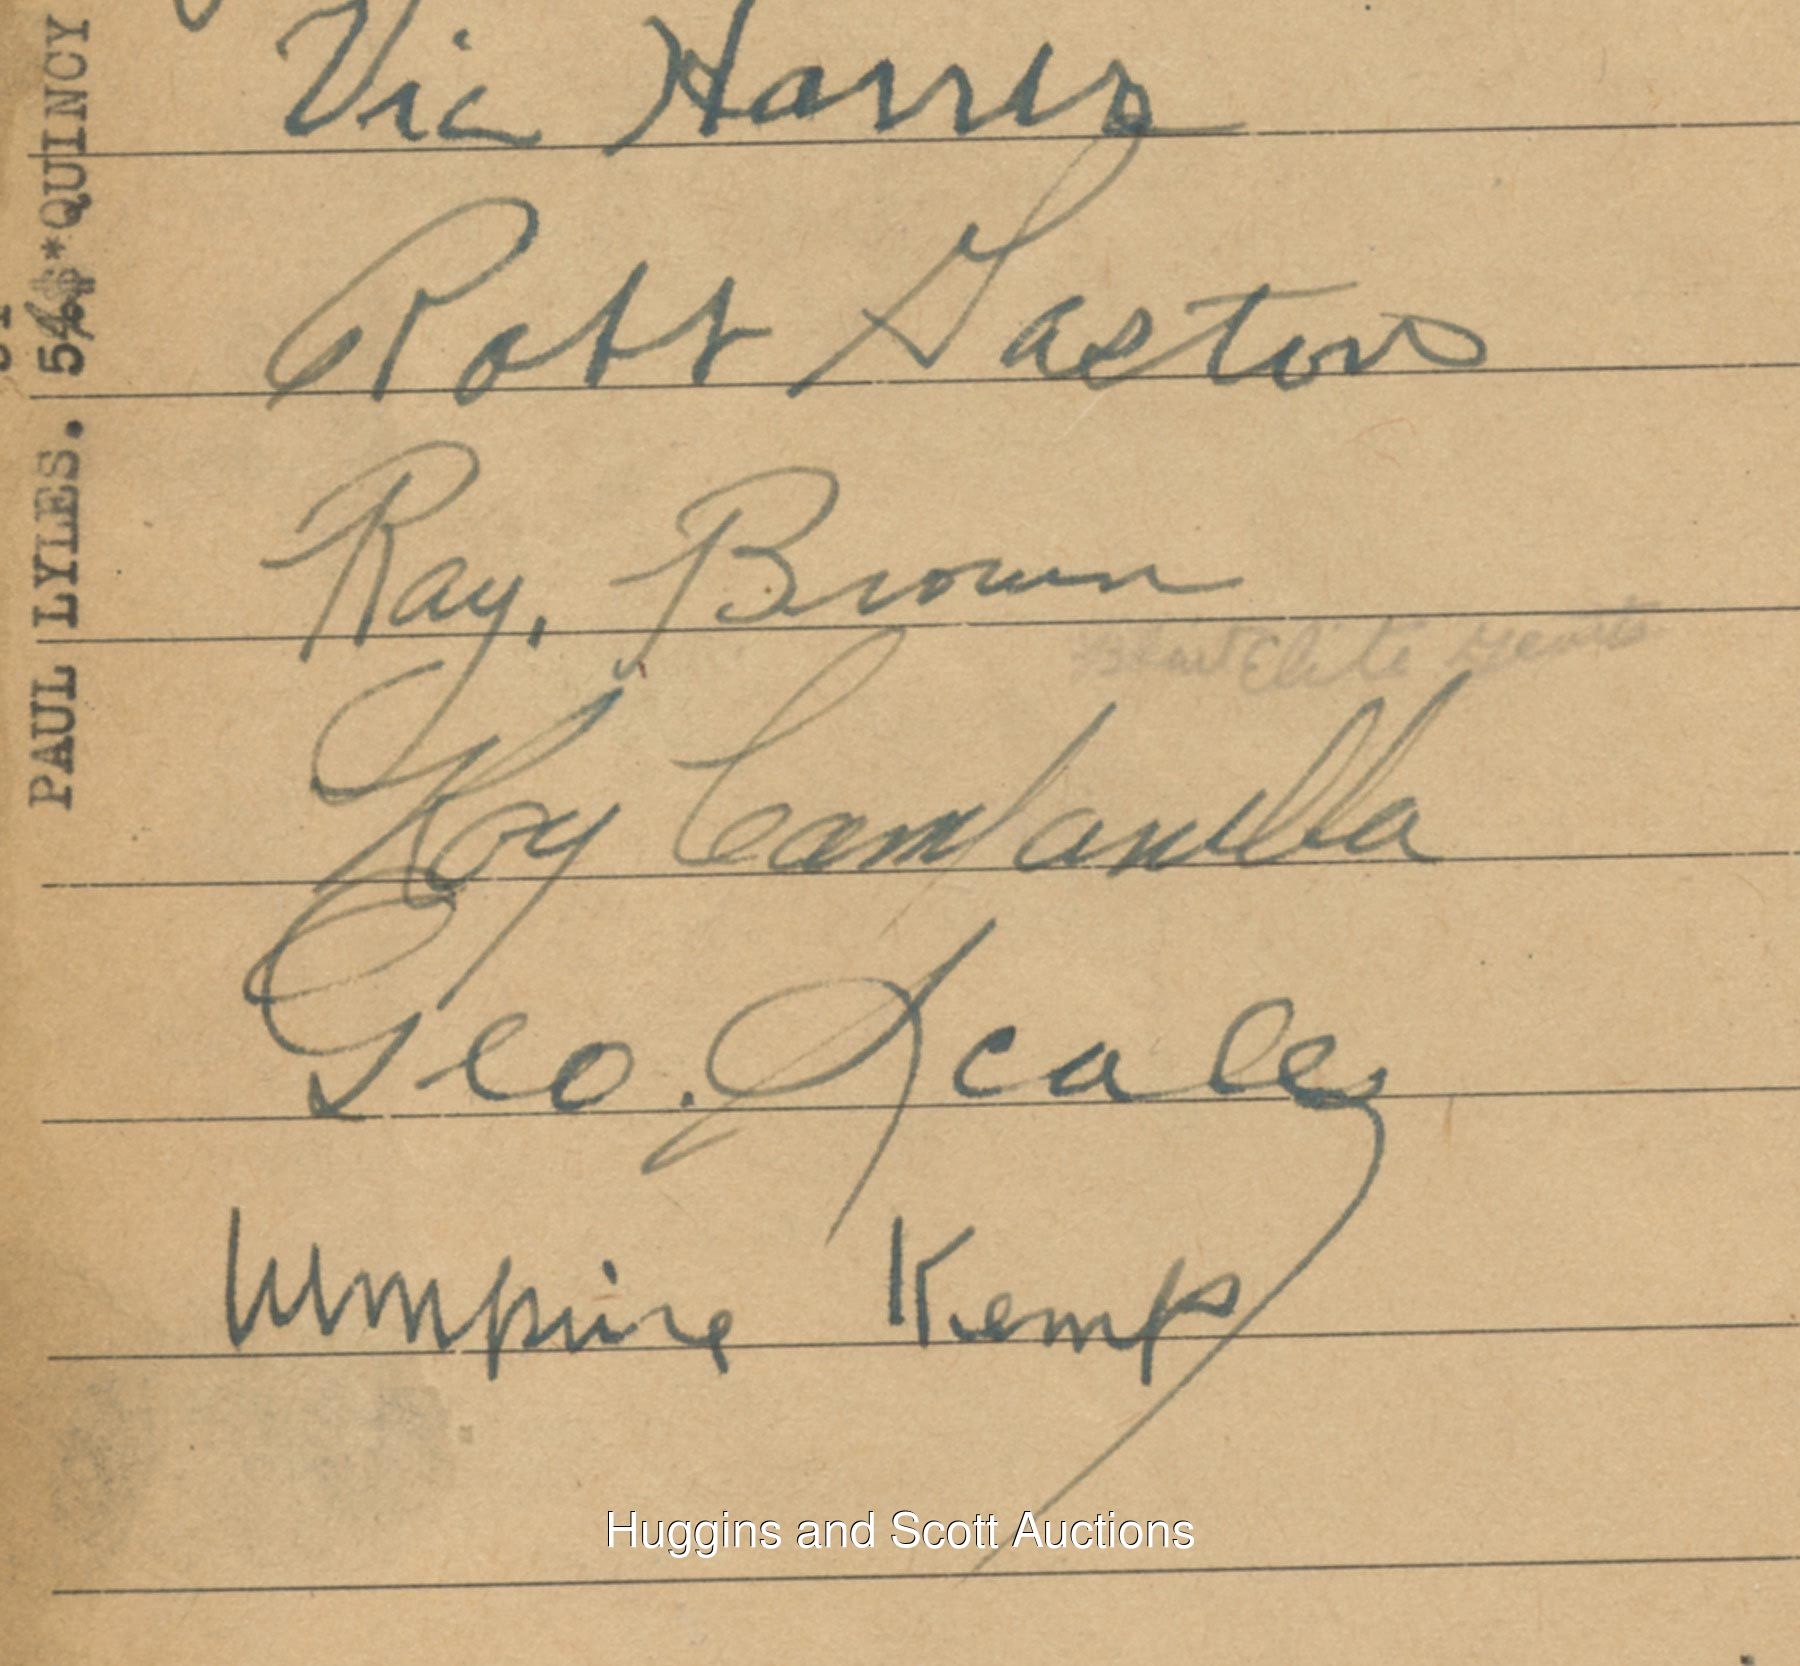 Vic Harris
Robt Gaston
Ray, Brown
Elite Giants
Roy Campanella
Geo. Scales
Umpire Kemp
PAUL LYLES. 54 *QUINCY
Huggins and Scott Auctions